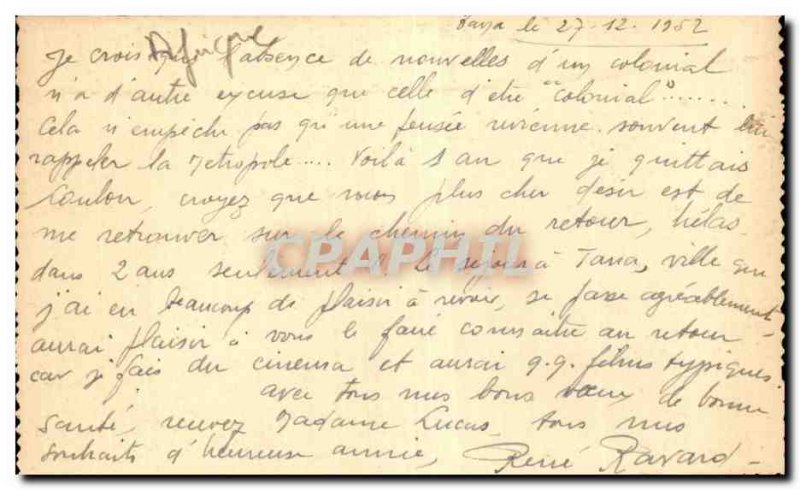 Tana le 27-12-1952
Afrique
Je crois que l'absence de nouvelles d'un colonial
n'a d'autre excuse que celle d'être "colonial".......
Cela n'empêche pas qu'une pensée vienne souvent lui
rappeler la Métropole.... Voilà 1 an que je quittais
Toulon, croyez que mon plus cher désir est de
me retrouver sur le chemin du retour, hélas
dans 2 ans seulement. Le séjour à Tana, ville que
j'ai eu beaucoup de plaisir à revoir, se passe agréablement
aurai plaisir à vous le faire connaître au retour
car je fais du cinema et aurai q.q. films typiques.
avec tous mes bons vœux de bonne
santé, recevez Madame Lucas, tous mes
souhaits d'heureuse année,
René Ravard
CPAPHIL